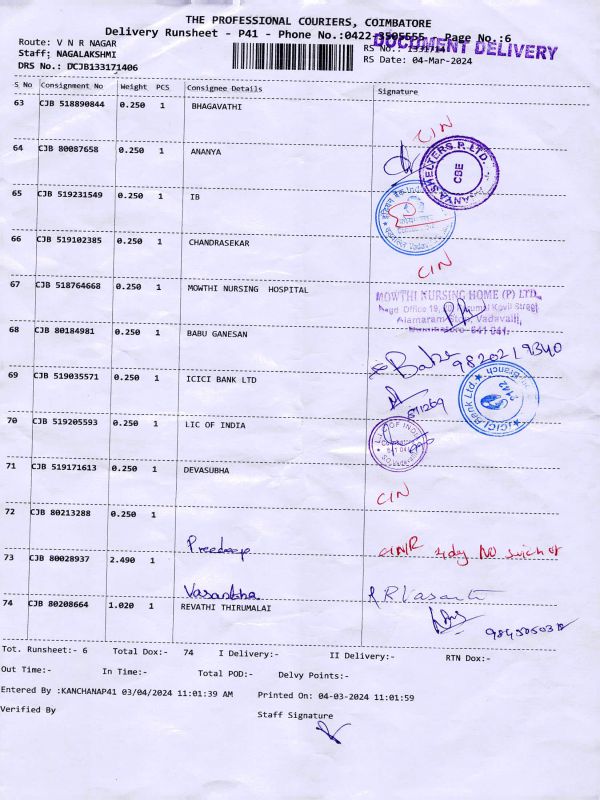 THE PROFESSIONAL COURIERS, COIMBATORE
Delivery Runsheet - P41 - Phone No.:0422-3505555 - Page No.:6
Route: V N R NAGAR
DOCUMENT DELIVERY
Staff: NAGALAKSHMI
DRS No.: DCJB133171406
RS Date: 04-Mar-2024
S No Consignment No Weight PCS Consignee Details Signature
63 CJB 518890844 0.250 1 BHAGAVATHI CIN
64 CJB 80087658 0.250 1 ANANYA
SHELTERS P. LTD. CBE
65 CJB 519231549 0.250 1 IB
66 CJB 519102385 0.250 1 CHANDRASEKAR CIN
67 CJB 518764668 0.250 1 MOWTHI NURSING HOSPITAL
MOWTHI NURSING HOME (P) LTD.,
68 CJB 80184981 0.250 1 BABU GANESAN
69 CJB 519035571 0.250 1 ICICI BANK LTD
ICICI Bank Ltd.
70 CJB 519205593 0.250 1 LIC OF INDIA
LIC OF INDIA
71 CJB 519171613 0.250 1 DEVASUBHA CIN
72 CJB 80213288 0.250 1
Preedeep
73 CJB 80028937 2.490 1
Vasantha R R Vasant
74 CJB 80208664 1.020 1 REVATHI THIRUMALAI
Tot. Runsheet:- 6 Total Dox:- 74 I Delivery:- II Delivery:- RTN Dox:-
Out Time:- In Time:- Total POD:- Delvy Points:-
Entered By :KANCHANAP41 03/04/2024 11:01:39 AM Printed On: 04-03-2024 11:01:59
Verified By Staff Signature